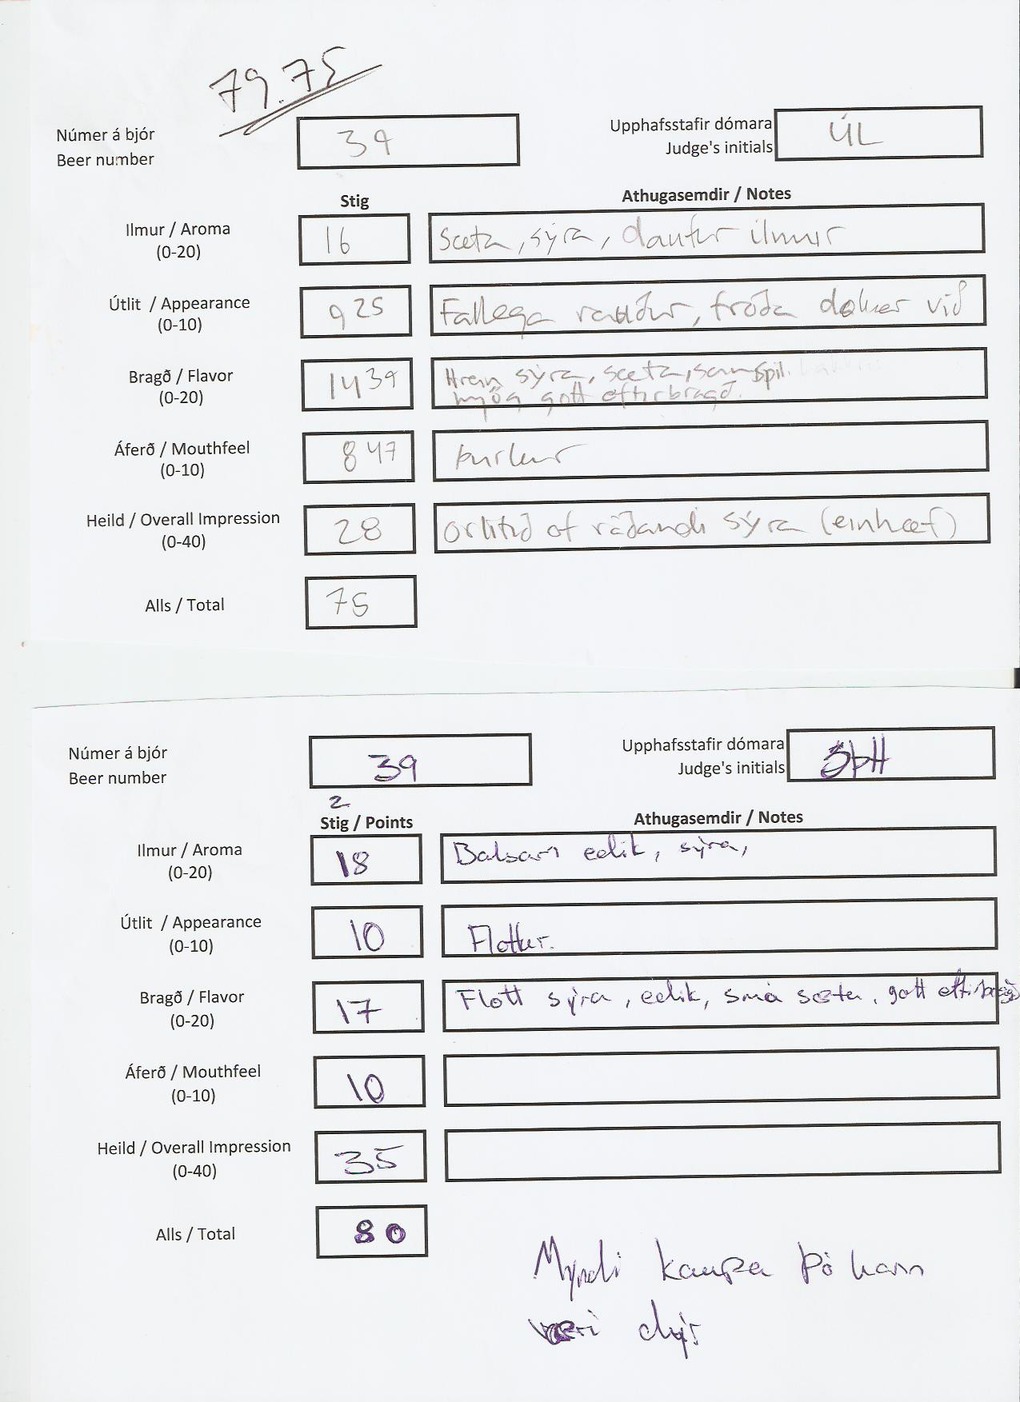 79.75
Númer á bjór
Beer number
39
Upphafsstafir dómara
Judge's initials
ÚL
Stig
Athugasemdir / Notes
Ilmur / Aroma
(0-20)
16
Sæta, sýra, daufur ilmur
Útlit / Appearance
(0-10)
9 25
Fallega rauður, froða dokar við
Bragð / Flavor
(0-20)
14 39
Hrein sýra, sæta, samspil.
mjög gott eftirbragð.
Áferð / Mouthfeel
(0-10)
8 47
þurkur
Heild / Overall Impression
(0-40)
28
Örlitið of ráðandi sýra (einhæf)
Alls / Total
75
Númer á bjór
Beer number
39
Upphafsstafir dómara
Judge's initials
2
Stig / Points
Athugasemdir / Notes
Ilmur / Aroma
(0-20)
18
Balsam edik, sýra,
Útlit / Appearance
(0-10)
10
Flottur.
Bragð / Flavor
(0-20)
17
Flott sýra, edik, smá sæta, gott eftirbragð
Áferð / Mouthfeel
(0-10)
10
Heild / Overall Impression
(0-40)
35
Alls / Total
80
Myndi kaupa þó hann
væri dýr